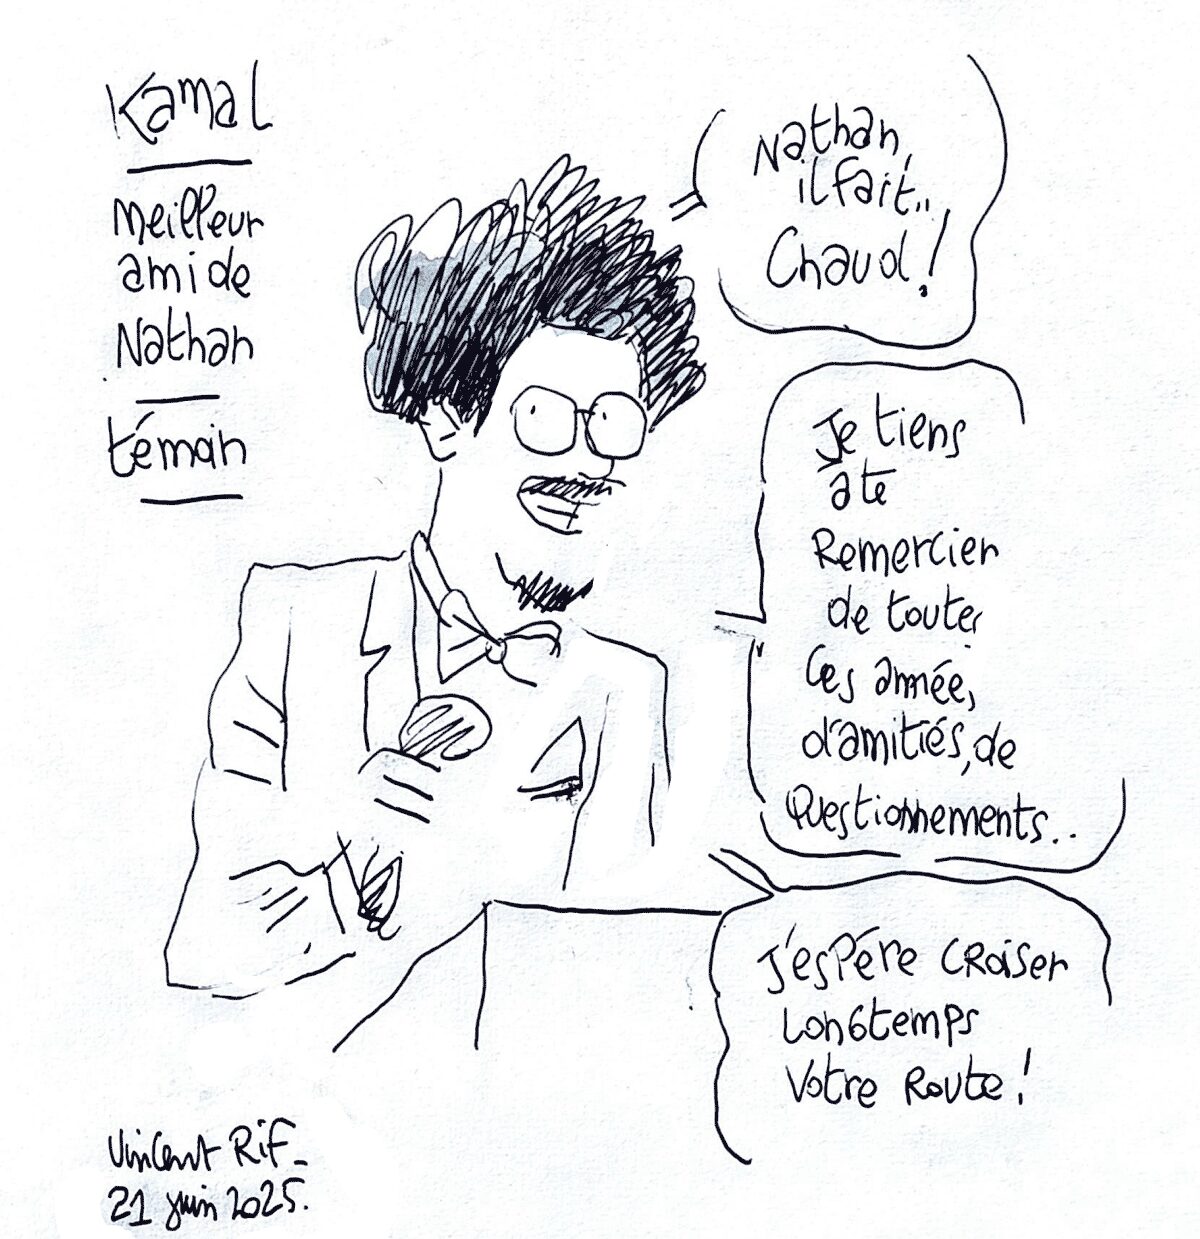 Kamal
Meilleur
ami de
Nathan
témoin
Nathan,
il fait..
Chaud !
Je tiens
à te
Remercier
de toutes
ces années,
d'amitiés, de
Questionnements..
J'espère croiser
Longtemps
Votre Route !
Vincent Rif_
21 juin 2025.